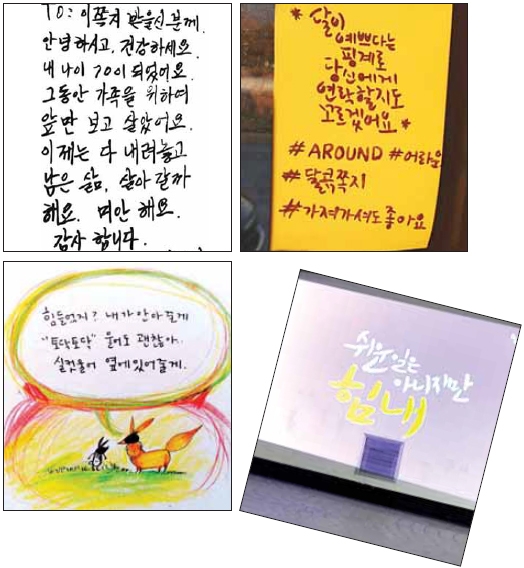 TO: 이쪽지 받을신분께.
안녕하시고, 건강하세요.
내 나이 70이 되었어요.
그동안 가족을 위하여
앞만 보고 살았어요.
이제는 다 내려놓고
남은 삶, 살아 갈까
해요. 미안 해요.
감사 합니다.
* 달이
예쁘다는
핑계로
당신에게
연락할지도
모르겠어요 *
#AROUND #어라운
#달콕쪽지
#가져가셔도좋아요
힘들었지? 내가 안아줄게
"토닥토닥" 울어도 괜찮아.
실컷울어 옆에있어줄게.
쉬운 일은
아니지만
힘내